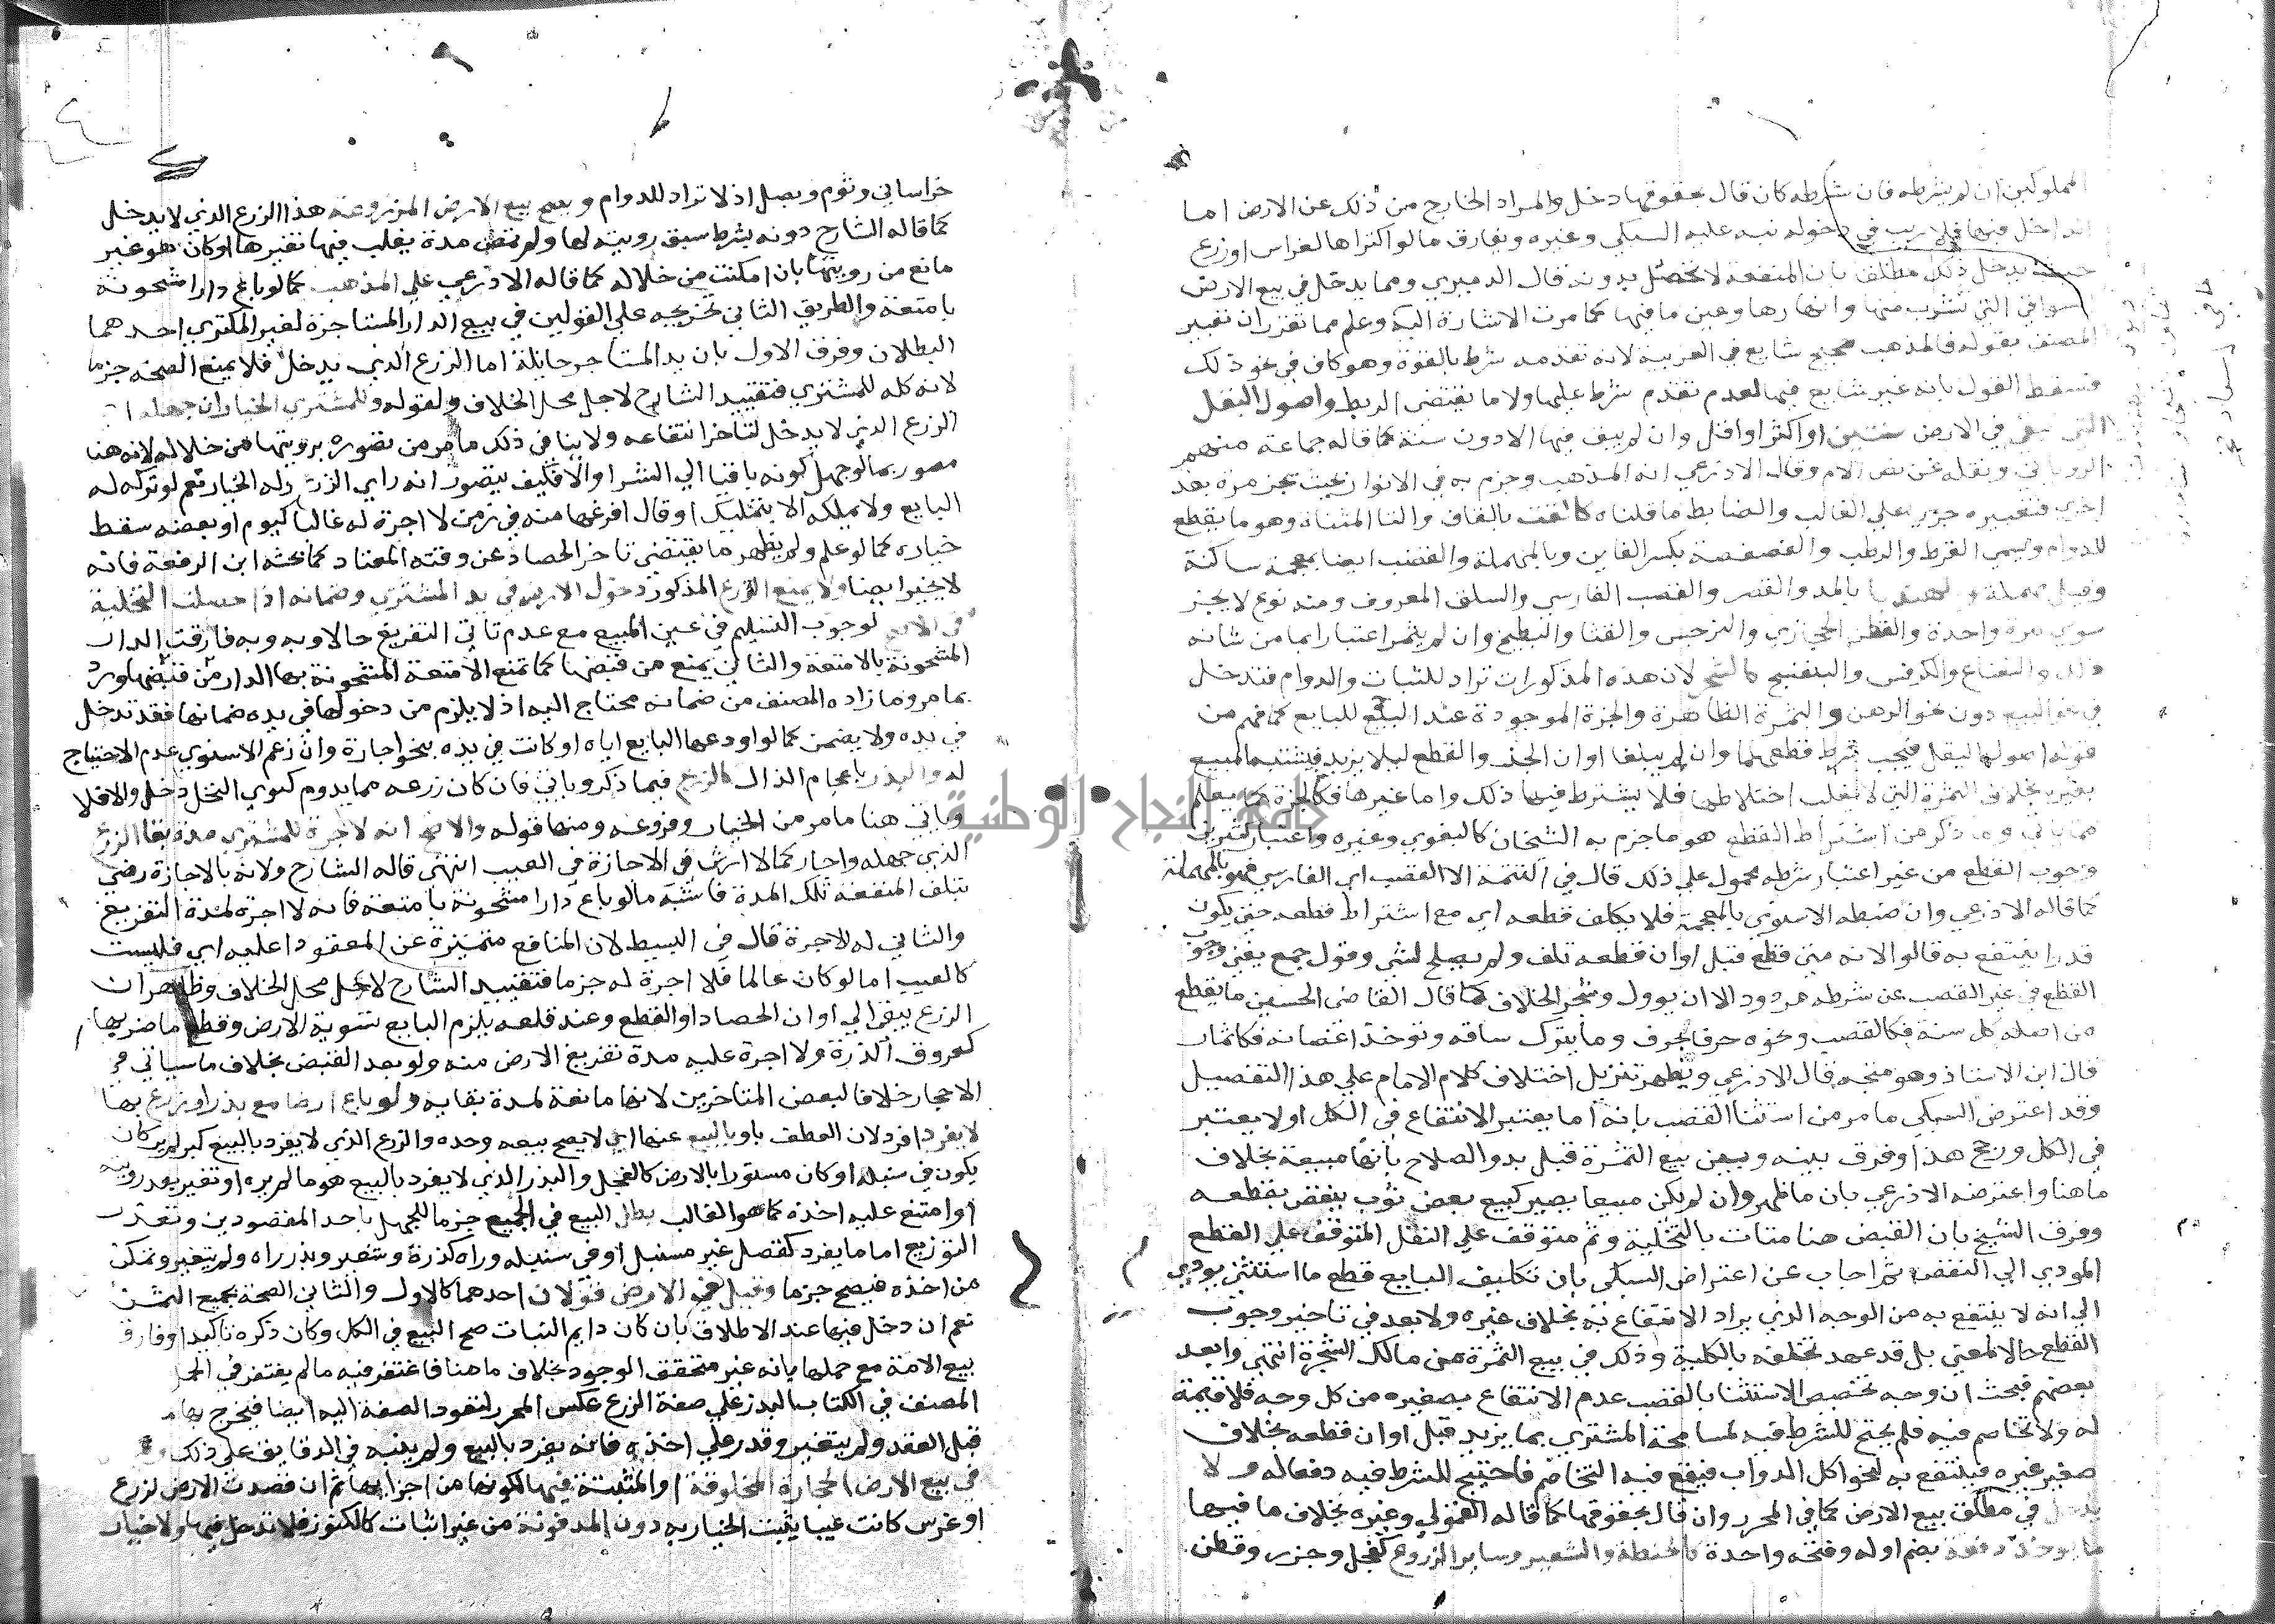 المملوكين ان لم يشرطه فان شرطه كان قال بحقوقها دخل والمراد الخارج من ذلك عن الارض اما
الداخل فيها فلا ريب في دخوله نبه عليه السبكي وغيره ويفارق ما لو اكتراها لغراس او زرع
حيث يدخل ذلك مطلقا بان المنفعة لا تحصل بدونه قال الدميري ومما يدخل في بيع الارض
السواقي التي تشرب منها وانهارها وعين ما فيها كما مرت الاشارة اليه وعلم مما تقرر ان تعبير
المصنف بقوله فالمذهب صحيح شايع في العربية لانه تقدمه شرط بالقوة وهو كاف في نحو ذلك
فسقط القول بانه غير شايع فيها لعدم تقدم شرط عليها ولا ما يقتضي الربط واصول البقل
التي تبقى في الارض سنتين او اكثر او اقل وان لم يبق فيها الا دون سنة كما قاله جماعة منهم
الروياني ونقله عن نص الام وقال الاذرعي انه المذهب وجزم به في الانوار بحيث تجز مرة بعد
اخرى فتعبيره جرى على الغالب والضابط ما قلناه كالقت بالقاف والتا المثناة وهو ما يقطع
للدوام ويسمى القرط والرطب والفصفصة بكسر الفاين وبالمهملة والقضب ايضا بمعجمة ساكنة
وقيل مهملة والهندبا بالمد والقصر والقصب الفارسي والسلق المعروف ومنه نوع لا يجز
سوى مرة واحدة والقطن الحجازي والنرجس والقثا والبطيخ وان لم يثمر اعتبارا بما من شانه
ذلك والنعناع والكرفس والبنفسج كالشجر لان هذه المذكورات تراد للثبات والدوام فتدخل
في نحو البيع دون نحو الرهن والثمرة الظاهرة والجزة الموجودة عند البيع للبايع كما فهم من
قوله اصولها لبقل فيجب شرط قطعهما وان لم يبلغا اوان الجذ والقطع ليلا يزيد فيشتبه المبيع
بغيره بخلاف الثمرة التي لا يغلب اختلاطها فلا يشترط فيها ذلك واما غيرها فكالجزة كما يعلم
مما ياتي وما ذكر من اشتراط القطع هو ما جزم به الشيخان كالبغوي وغيره واعتبار كثيرين
وجوب القطع من غير اعتبار شرطه محمول على ذلك قال في التتمة الا القصب اي الفارسي فهو بالمهملة
كما قاله الاذرعي وان ضبطه الاسنوي بالمعجمة فلا يكلف قطعه اي مع اشتراط قطعه حتى يكون
قدرا ينتفع به قالوا لانه متى قطع قبل اوان قطعه تلف ولم يصلح لشي وقول جمع يغني وجوب
القطع في غير القصب عن شرطه مردود الا ان يوول ومحل الخلاف كما قال القاضي الحسين ما يقطع
من اصله كل سنة فكالقصب ونحوه حرفا بحرف وما يترك ساقه وتوخذ اغصانه فكالثمار
قال ابن الاستاذ وهو متجه قال الاذرعي ويظهر تنزيل اختلاف كلام الامام على هذا التفصيل
وقد اعترض السبكي ما مر من استثنا القصب بانه اما يعتبر الانتفاع في الكل او لا يعتبر
في الكل ورجح هذا وفرق بينه وبين بيع الثمرة قبل بدو الصلاح بانها مبيعة بخلاف
ما هنا واعترضه الاذرعي بان ما ظهر وان لم يكن مبيعا يصير كبيع بعض ثوب ينقص بقطعه
وفرق الشيخ بان القبض هنا متات بالتخلية وثم متوقف على النقل المتوقف على القطع
المودي الى النقض ثم اجاب عن اعتراض السبكي بان تكليف البايع قطع ما استثني يودي
الى انه لا ينتفع به من الوجه الذي يراد الانتفاع به بخلاف غيره ولا بعد في تاخير وجوب
القطع حالا لمعنى بل قد عهد تخلفه بالكلية وذلك في بيع الثمرة من مالك الشجرة انتهى وابعد
بعضهم فبحث ان وجه تخصيص الاستثنا بالقصب عدم الانتفاع بصغيره من كل وجه فلا قيمة
له ولا تخاصم فيه فلم يحتج للشرط فيه لمسامحة المشتري بما يزيد قبل اوان قطعه بخلاف
صغير غيره فينتفع به لنحو اكل الدواب فيقع فيه التخاصم فاحتيج للشرط فيه دفعا له ولا
يدخل في مطلق بيع الارض كما في المحرر وان قال بحقوقها كما قاله القمولي وغيره بخلاف ما فيها
ما يوخذ دفعة بضم اوله وفتحه واحدة كالحنطة والشعير وساير الزروع كفجل وجزر وقطن
خراساني وثوم وبصل اذ لا تراد للدوام ويصح بيع الارض المزروعة هذا الزرع الذي لا يدخل
كما قاله الشارح دونه بشرط سبق رويته لها ولم تمض مدة يغلب فيها تغيرها او كان هو غير
مانع من رويتها بان امكنت من خلاله كما قاله الاذرعي على المذهب كما لو باع دارا مشحونة
بامتعة والطريق الثاني تخريجه على القولين في بيع الدار المستاجرة لغير المكتري احدهما
البطلان وفرق الاول بان يد المستاجر حايلة اما الزرع الذي يدخل فلا يمنع الصحة جزما
لانه كله للمشتري فتقييد الشارح لاجل محل الخلاف ولقوله وللمشتري الخيار ان جهله
الزرع الذي لا يدخل لتاخر انتفاعه ولا ينافي ذلك ما مر من تصوره برويتها من خلاله لانه هنا
مصور بما لو جهل كونه باقيا الى الشرا والا فكيف يتصور انه راى الزرع وله الخيار نعم لو تركه له
البايع ولا يملكه الا بتمليك او قال افرغها منه في زمن لا اجرة له غالبا كيوم او بعضه سقط
خياره كما لو علم ولم يظهر ما يقتضي تاخر الحصاد عن وقته المعتاد كما بحثه ابن الرفعة فانه
لا يخير ايضا ولا يمنع الزرع المذكور دخول الارض في يد المشتري وضمانه اذا حصلت التخلية
في الاصح لوجوب التسليم في عين المبيع مع عدم تاتي التفريغ حالا وبه وبه فارقت الدار
المشحونة بالامتعة والثاني يمنع من قبضها كما تمنع الامتعة المشحونة بها الدار من قبضها ورد
بما مر وما زاده المصنف من ضمانه محتاج اليه اذ لا يلزم من دخولها في يده ضمانها فقد تدخل
في يده ولا يضمن كما لو اودعها البايع اياه او كانت في يده بنحو اجارة وان زعم الاسنوي عدم الاحتياج
له والبذر باعجام الذال كالزرع فيما ذكر وياتي فان كان زرعه مما يدوم كنوى النخل دخل والا فلا
وياتي هنا ما مر من الخيار وفروعه ومنها قوله والاصح انه لا اجرة للمشتري مدة بقا الزرع
الذي جهله واجاز كما لا ارش في الاجازة في العيب انتهى قاله الشارح ولانه بالاجازة رضي
بتلف المنفعة تلك المدة فاشبه ما لو باع دارا مشحونة بامتعة فانه لا اجرة لمدة التفريغ
والثاني له الاجرة قال في البسيط لان المنافع متميزة عن المعقود عليه اي فليست
كالعيب اما لو كان عالما فلا اجرة له جزما فتقييد الشارح لاجل محل الخلاف وظاهر ان
الزرع يبقى الى اوان الحصاد او القطع وعند قلعه يلزم البايع تسوية الارض وقطع ما ضر بها
كعروق الذرة ولا اجرة عليه مدة تفريغ الارض منه ولو بعد القبض بخلاف ما سياتي في
الاحجار خلافا لبعض المتاخرين لانها مانعة لمدة بقايه ولو باع ارضا مع بذر او زرع بها
لا يفرد افرد لان العطف باو بالبيع عنها اي لا يصح بيعه وحده والزرع الذي لا يفرد بالبيع كبر لم ير كان
يكون في سنبله او كان مستورا بالارض كالفجل والبذر الذي لا يفرد بالبيع هو ما لم يره او تغير بعد رويته
او امتنع عليه اخذه كما هو الغالب بطل البيع في الجميع جزما للجهل باحد المقصودين وتعذر
التوزيع اما ما يفرد كقصيل غير مسنبل او في سنبله وراه كذرة وشعير وبذر راه ولم يتغير وتمكن
من اخذه فيصح جزما وقيل في الارض قولان احدهما كالاول والثاني الصحة بجميع الثمن
نعم ان دخل فيها عند الاطلاق بان كان دايم النبات صح البيع في الكل وكان ذكره تاكيدا وفارق
بيع الامة مع حملها بانه غير متحقق الوجود بخلاف ما هنا فاغتفر فيه ما لم يغتفر في
المصنف في الكتاب البذر على صفة الزرع عكس المحرر لتعود الصفة اليه ايضا فيخرج بها
قبل العقد ولم يتغير وقدر على اخذه فانه يفرد بالبيع ولم ينبه في الدقايق على ذلك
في بيع الارض الحجارة المخلوقة او المثبتة فيها لكونها من اجزايها ثم ان قصدت الارض لزرع
او غرس كانت عيبا يثبت الخيار به دون المدفونة من غير اثبات كالكنوز فلا تدخل فيها ولا خيار
جامعة النجاح الوطنية